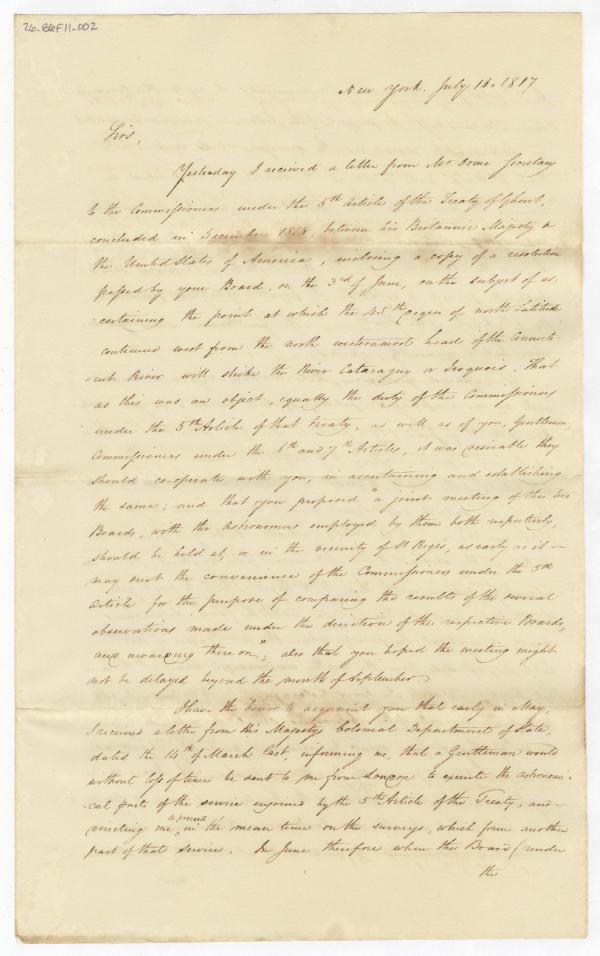 26-B6F11-002
New York. July 14. 1817
Sirs,
Yesterday I received a letter from Mr Orne Secretary
to the Commissioners under the 5th Article of the Treaty of Ghent,
concluded in December 1814, between his Britannic Majesty &
the United States of America, inclosing a copy of a resolution
passed by your Board, on the 3rd of June, on the subject of as-
-certaining the point at which the 45th degree of north Latitude
continued west from the north westernmost head of the Connecti-
-cut River will strike the River Cataraguy or Iroquois. That
as this was an object, equally the duty of the Commissioners
under the 5th Article of that treaty, as well as of you, Gentlemen,
Commissioners under the 6th and 7th Articles, it was desirable they
should co-operate with you, in ascertaining and establishing
the same; and that you proposed "a joint meeting of the two
Boards, with the Astronomers employed by them both respectively,
should be held at, or in the vicinity of St Regis, as early as it
may suit the convenience of the Commissioners under the 5th
Article for the purpose of comparing the results of the several
observations made under the direction of the respective Boards,
and awarding thereon"; also that you hoped the meeting might
not be delayed beyond the month of September.
I have the honor to acquaint you that early in May,
I received a letter from His Majestys Colonial Department of State,
dated the 14th of March last, informing me, that a Gentleman would
without loss of time be sent to me from London to execute the astronomi-
-cal part of the service enjoined by the 5th Article of the Treaty, and
directing me to proceed in the mean time on the surveys, which form another
part of that service. In June therefore when the Board (under
the